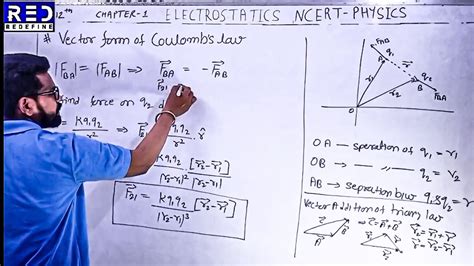 RED
REDEFINE
12th CHAPTER-1 ELECTROSTATICS NCERT-PHYSICS
# Vector form of Coulomb's law
|F⃗BA| = |F⃗AB| ⇒ F⃗BA = -F⃗AB
F⃗21
find force on q2
= Kq1q2/r² ⇒ F⃗21 = Kq1q2/r² . r̂
Kq1q2/|r2-r1|² [r⃗2-r⃗1]/|r2-r1|
F⃗21 = Kq1q2/|r2-r1|³ [r⃗2-r⃗1]
FAB
A q1
r
q2
r1
r2
B
FBA
O
OA - speration of q1 = r1
OB - " " q2 = r2
AB - sepration b/w q1 & q2 = r
Vector Addition of triang law
A
B